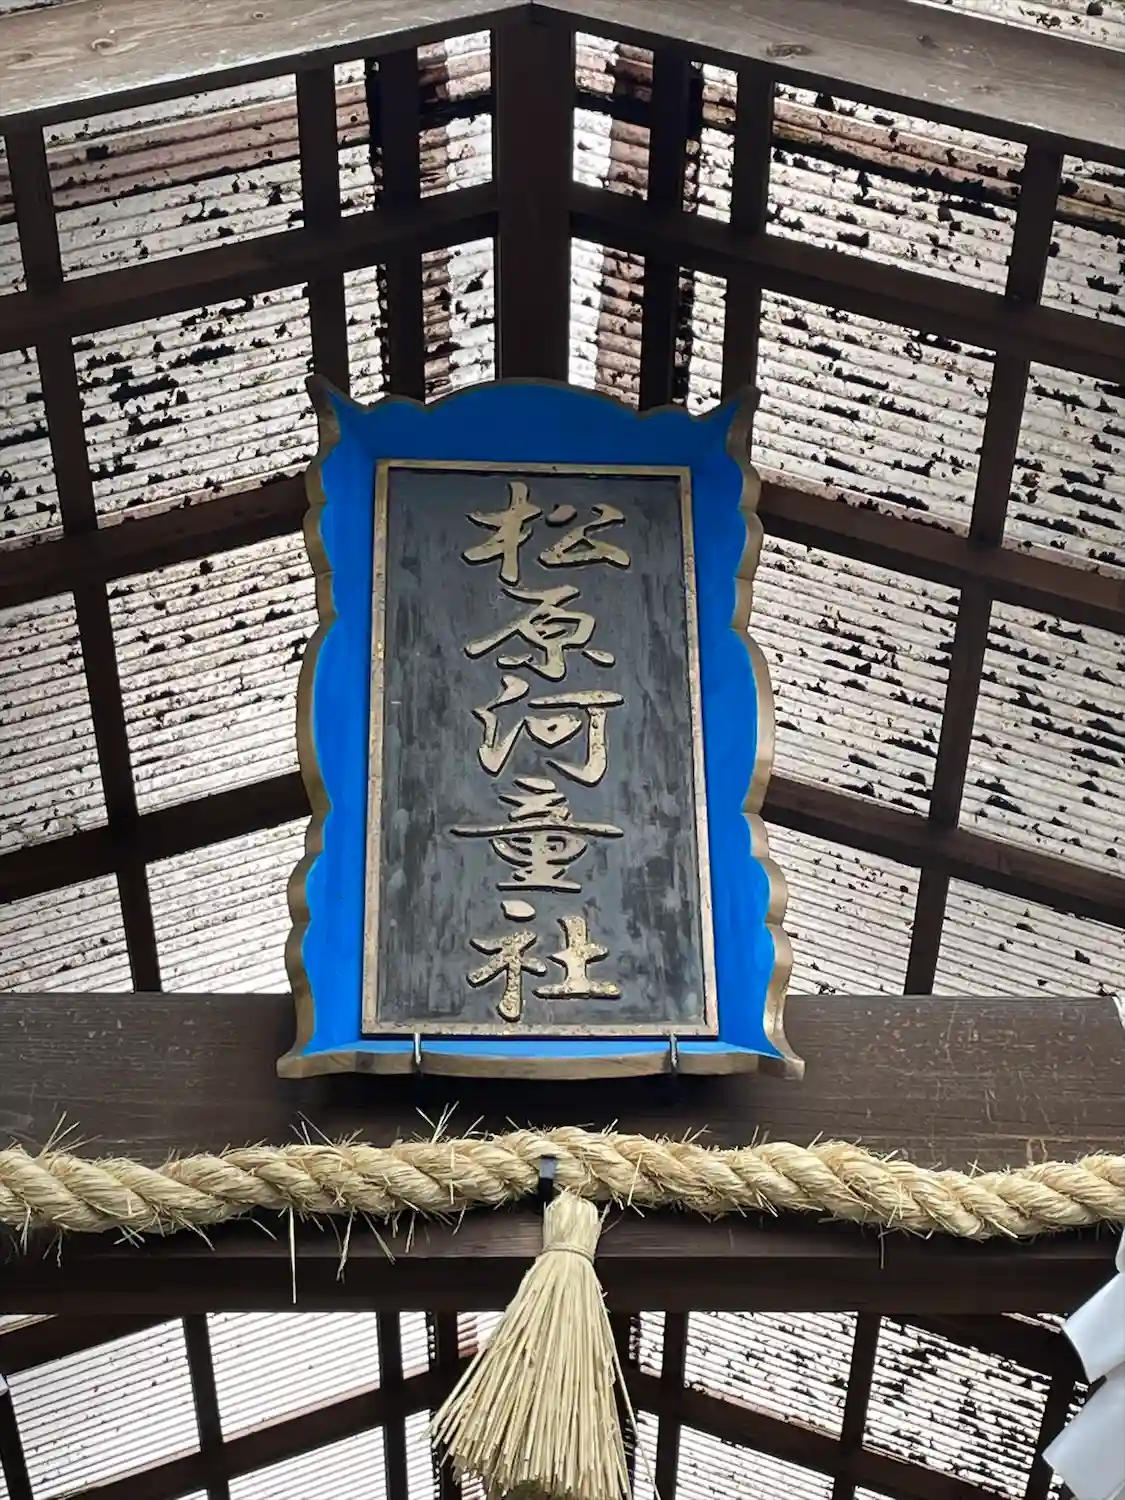 松原河童社